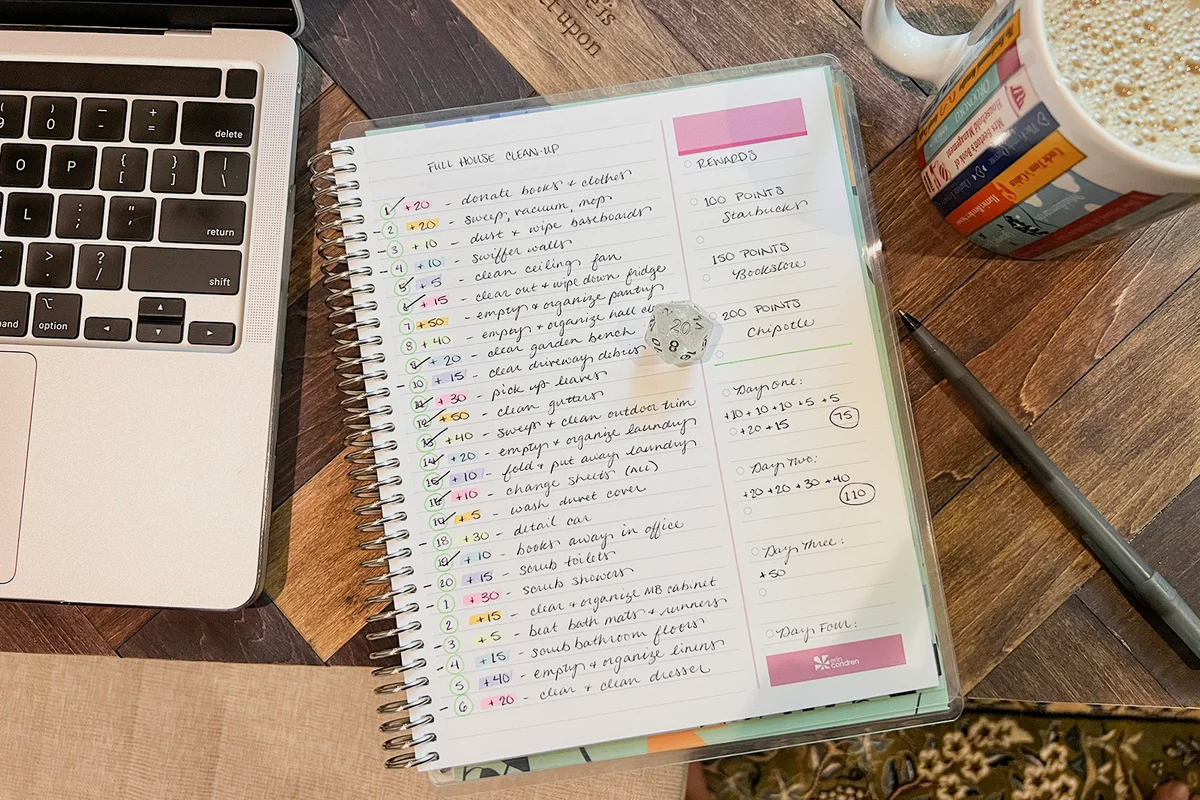 0
delete
O P { [ } ] | \
L : ; " ' return
> . ? / shift
option
upon
FULL HOUSE CLEAN-UP
1 +20 - donate books & clothes
- 2 +20 - sweep, vacuum, mop
3 +10 - dust & wipe baseboards
- 4 +10 - swiffer walls
5 +5 - clean ceiling fan
6 +15 - clear out & wipe down fridge
7 +50 - empty & organize pantry
8 +40 - empty & organize hall
9 +20 - clear garden bench
- 10 +15 - clear driveway debris
11 +30 - pick up leaves
12 +50 - clean gutters
13 +40 - sweep & clean outdoor trim
14 +20 - empty & organize laundry
15 +10 - fold & put away laundry
16 +10 - change sheets (ALL)
17 +5 - wash duvet cover
- 18 +30 - detail car
19 +10 - books away in office
- 20 +15 - scrub toilets
- 1 +30 - scrub showers
2 +15 - clear & organize MB cabinet
- 3 +5 - beat bath mats & runners
- 4 +15 - scrub bathroom floors
5 +40 - empty & organize linens
- 6 +20 - clear & clean dresser
20
8
REWARDS
100 POINTS
Starbucks
150 POINTS
Bookstore
200 POINTS
Chipotle
Day One:
+10 +10 +10 +5 +5
+20 +15 75
Day Two:
+20 +20 +30 +40
110
Day Three:
+50
Day Four:
erin condren
Mrs Beeton's Book of
Household Management